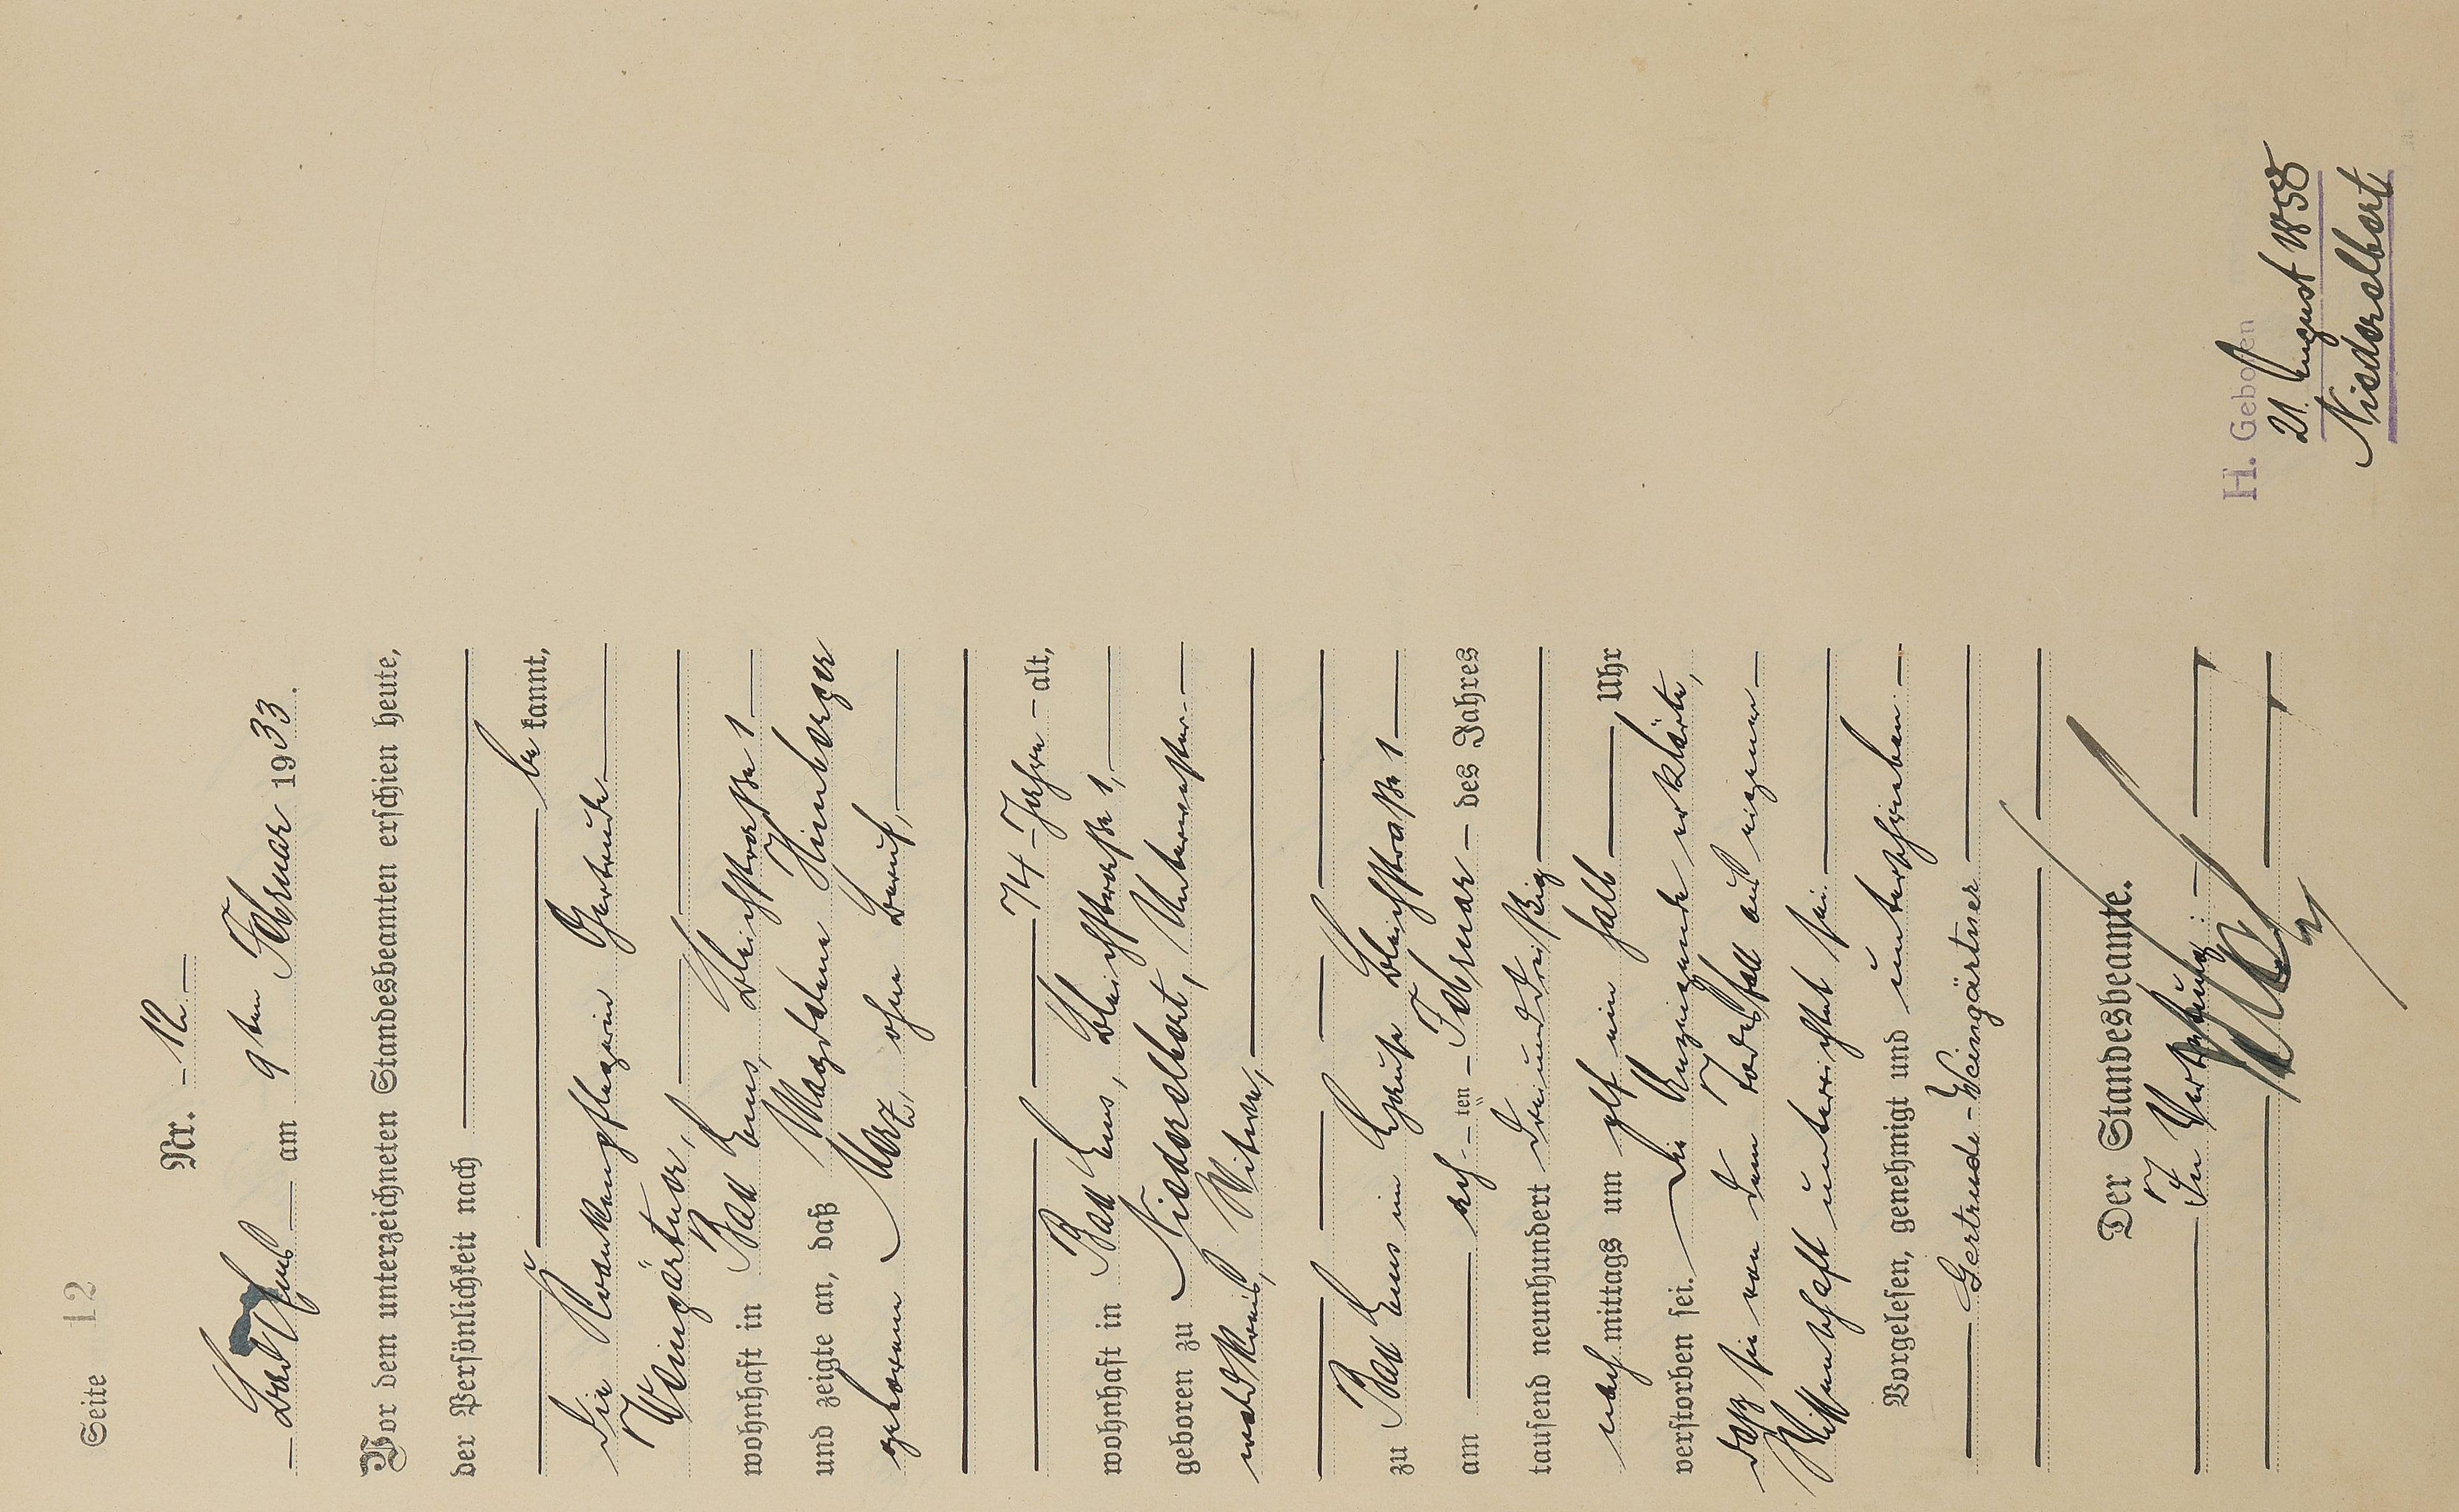 Seite 12
Nr. 12.
Bad Ems am 9ten Februar 1933.
Vor dem unterzeichneten Standesbeamten erschien heute,
der Persönlichkeit nach
be kannt,
die Krankenpflegerin Gertrude
Weingärtner,
wohnhaft in Bad Ems, Bleichstraße 1
und zeigte an, daß Magdalena Himberger
geborene Merz, ohne Beruf,
74 Jahre alt,
wohnhaft in Bad Ems, Bleichstraße 1,
geboren zu Niederelbert, Unterwester-
waldkreis, Witwe,
zu Bad Ems im Hause Bleichstraße 1
am ach- ten Februar des Jahres
tausend neunhundert dreiunddreißig
nach mittags um elf ein halb Uhr
verstorben sei. Die Anzeigende erklärte,
daß sie von dem Todesfall aus eigener
Wissenschaft unterrichtet sei.
Vorgelesen, genehmigt und unterschrieben
Gertrude Weingärtner
Der Standesbeamte.
In Vertretung:
H. Geboren
21. August 1858
Niederelbert